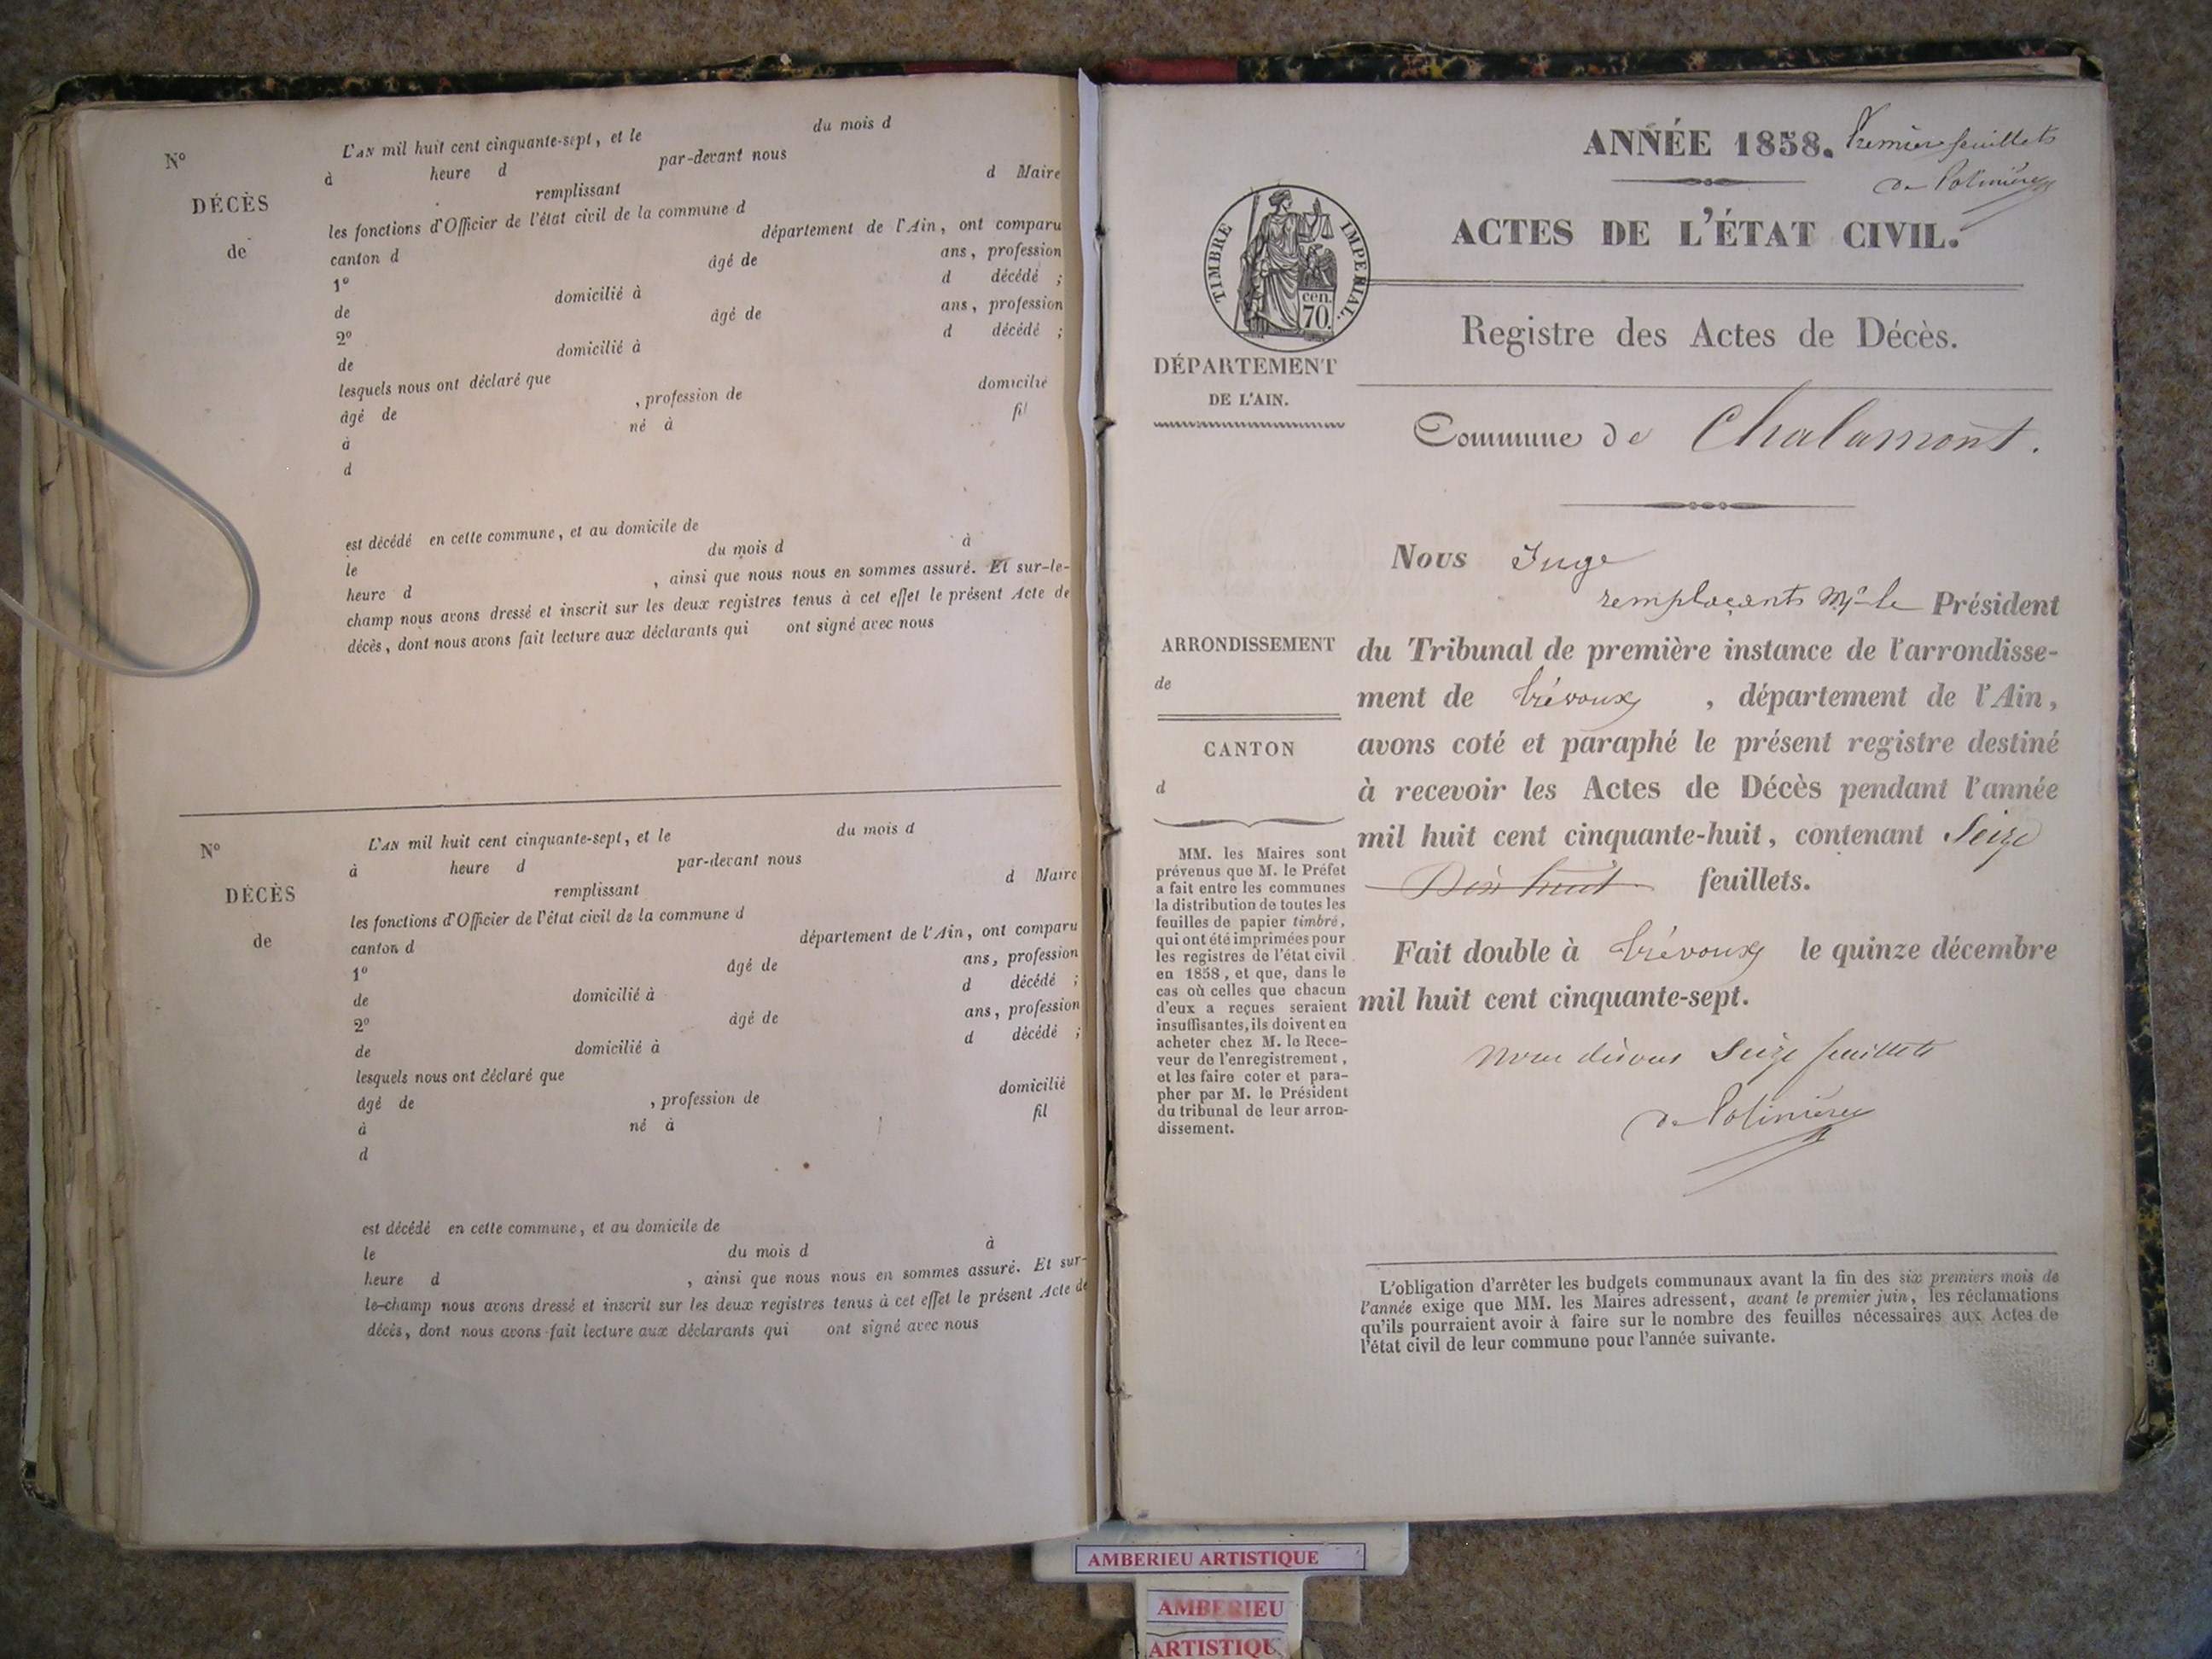 N°
DÉCÈS
de
L'AN mil huit cent cinquante-sept, et le du mois d
à heure d par-devant nous
remplissant d Maire
les fonctions d'Officier de l'état civil de la commune d
canton d département de l'Ain, ont comparu
1° âgé de ans, profession
de domicilié à d décédé ;
2° âgé de ans, profession
de domicilié à d décédé ;
lesquels nous ont déclaré que
âgé de , profession de domicilié
à né à fil
d
est décédé en cette commune, et au domicile de
le du mois d à
heure d , ainsi que nous nous en sommes assuré. Et sur-le-
champ nous avons dressé et inscrit sur les deux registres tenus à cet effet le présent Acte de
décès, dont nous avons fait lecture aux déclarants qui ont signé avec nous
N°
DÉCÈS
de
L'AN mil huit cent cinquante-sept, et le du mois d
à heure d par-devant nous
remplissant d Maire
les fonctions d'Officier de l'état civil de la commune d
canton d département de l'Ain, ont comparu
1° âgé de ans, profession
de domicilié à d décédé ;
2° âgé de ans, profession
de domicilié à d décédé ;
lesquels nous ont déclaré que
âgé de , profession de domicilié
à né à fil
d
est décédé en cette commune, et au domicile de
le du mois d à
heure d , ainsi que nous nous en sommes assuré. Et sur-
le-champ nous avons dressé et inscrit sur les deux registres tenus à cet effet le présent Acte de
décès, dont nous avons fait lecture aux déclarants qui ont signé avec nous
ANNÉE 1858. Premier feuillets
de Polinière
ACTES DE L'ÉTAT CIVIL.
TIMBRE IMPERIAL.
cen.
70.
Registre des Actes de Décès.
DÉPARTEMENT
DE L'AIN.
Commune de Chalamont.
Nous Juge
remplaçant Mr le Président
du Tribunal de première instance de l'arrondisse-
ment de Trévoux , département de l'Ain,
avons coté et paraphé le présent registre destiné
à recevoir les Actes de Décès pendant l'année
mil huit cent cinquante-huit, contenant Seize
Dix huit feuillets.
Fait double à Trévoux le quinze décembre
mil huit cent cinquante-sept.
Nous disons Seize feuillets
de Polinière
ARRONDISSEMENT
de
CANTON
d
MM. les Maires sont
prévenus que M. le Préfet
a fait entre les communes
la distribution de toutes les
feuilles de papier timbré,
qui ont été imprimées pour
les registres de l'état civil
en 1858, et que, dans le
cas où celles que chacun
d'eux a reçues seraient
insuffisantes, ils doivent en
acheter chez M. le Rece-
veur de l'enregistrement,
et les faire coter et para-
pher par M. le Président
du tribunal de leur arron-
dissement.
L'obligation d'arrêter les budgets communaux avant la fin des six premiers mois de
l'année exige que MM. les Maires adressent, avant le premier juin, les réclamations
qu'ils pourraient avoir à faire sur le nombre des feuilles nécessaires aux Actes de
l'état civil de leur commune pour l'année suivante.
AMBERIEU ARTISTIQUE
AMBERIEU
ARTISTIQUE